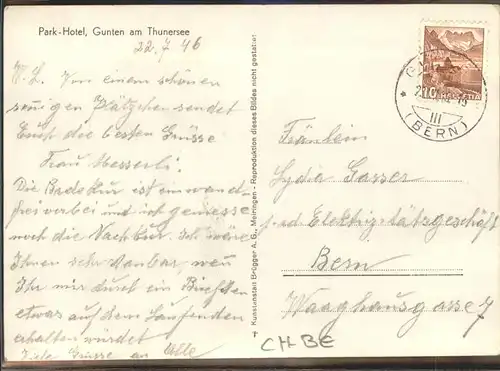 Park-Hotel, Gunten am Thunersee
22.7.46
M. L. Von einem schönen
sonnigen Plätzchen sendet
Euch die besten Grüsse
Frau Messerli.
Die Badekur ist einwand
frei vorbei und ich geniesse
noch die Nachkur. Ich wäre
Ihnen sehr dankbar, wen
Ihr mir durch ein Briefchen
etwas auf dem Laufenden
erhalten würdet
Viele Grüsse an Alle
Kunstanstalt Brügger A. G., Meiringen - Reproduktion dieses Bildes nicht gestattet
HELVETIA
III
(BERN)
Fräulein
Lydia Gasser
Elektrizitätsgeschäft
Bern
Waaghausgasse 7
CH-BE